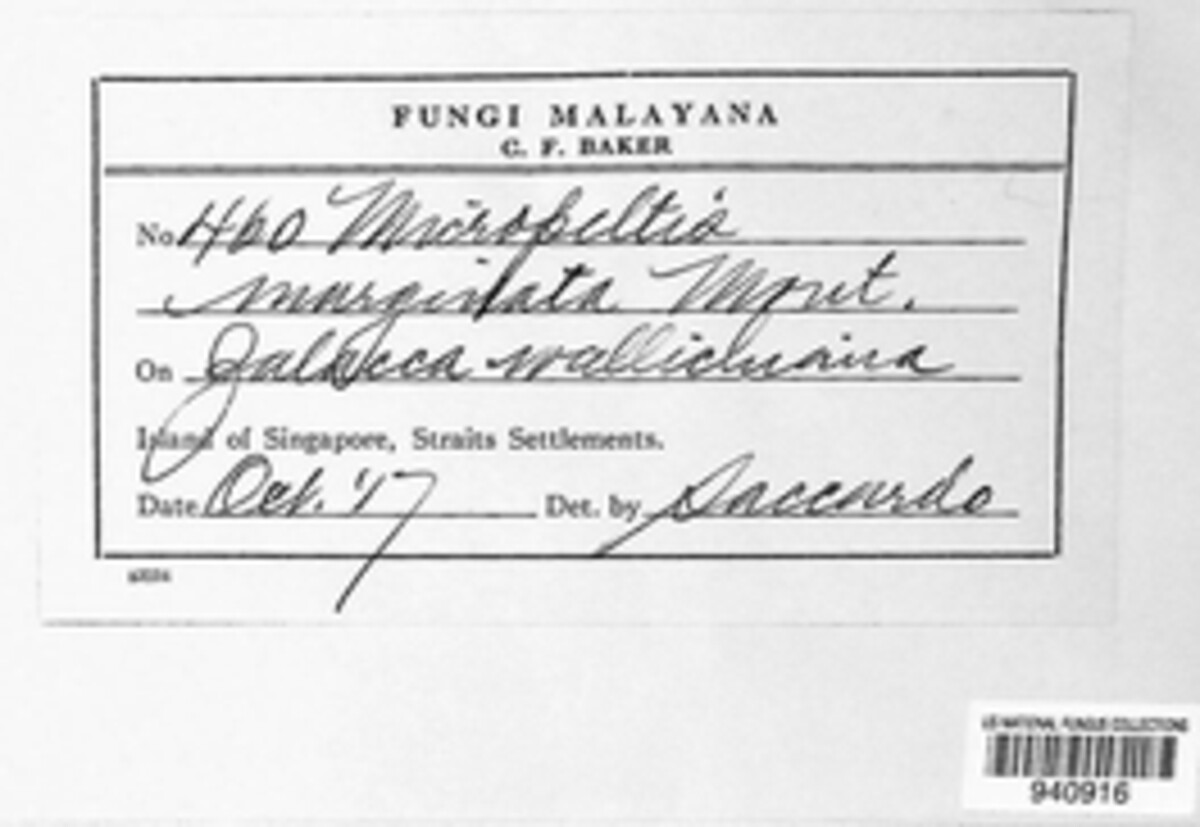 FUNGI MALAYANA
C. F. BAKER
No 460 Micropeltis
marginata Mont.
On Zalacca wallichiana
Island of Singapore, Straits Settlements.
Date Oct. '17 Det. by Saccardo
US NATIONAL FUNGUS COLLECTIONS
940916